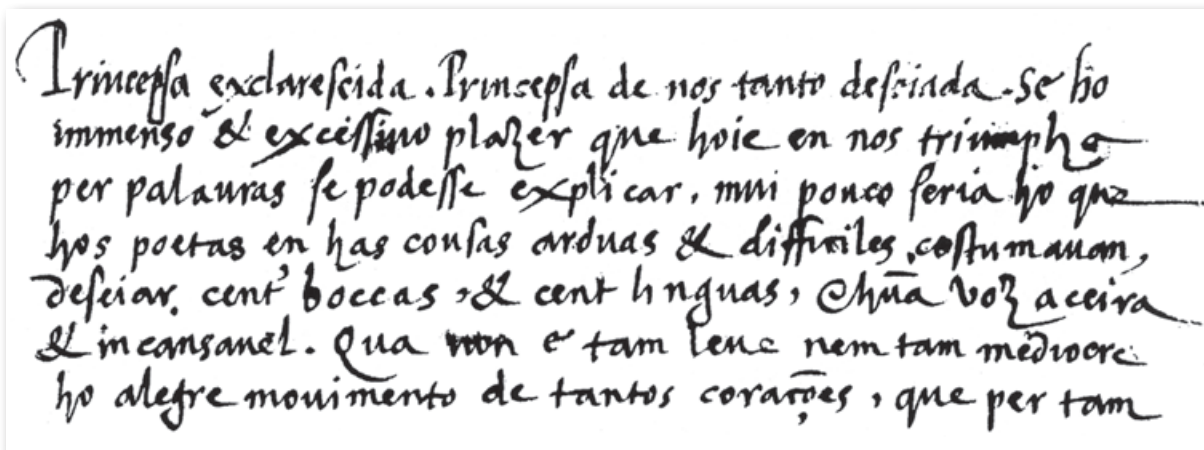 Princepsa exclarescida. Princepsa de nos tanto desejada. Se ho
immenso & excessiuo plazer que hoie en nos triumpha
per palauras se podesse explicar, mui pouco seria ho que
hos poetas en has cousas arduas & difficiles, costumauam,
deseiar. cent' boccas, & cent linguas, & hũa voz aceira
& incansauel. Qua non e tam leue nem tam mediocre
ho alegre mouimento de tantos corações, que per tam